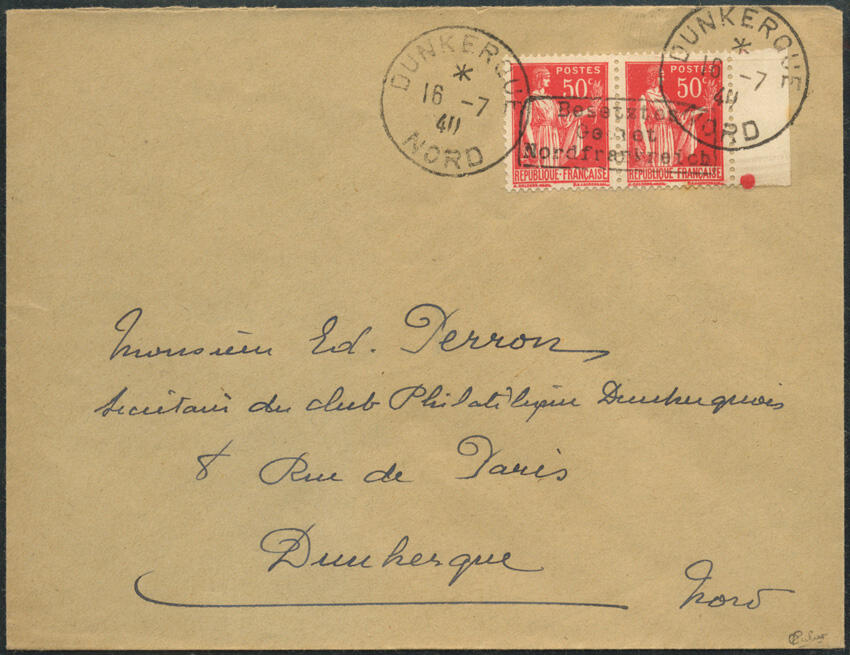 DUNKERQUE
16 -7
40
NORD
DUNKERQUE
16 -7
40
NORD
POSTES
50c
REPUBLIQUE-FRANÇAISE
POSTES
50c
REPUBLIQUE-FRANÇAISE
Besetztes
Gebiet
Nordfrankreich
Monsieur Ed. Perron
Secrétaire du club Philatélique Dunkerquois
8 Rue de Paris
Dunkerque
Nord